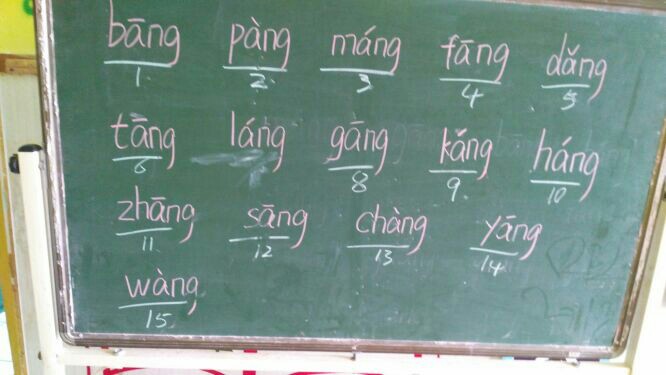 bāng pàng máng fāng dǎng
1 2 3 4 5
tāng láng gāng kǎng háng
6 8 9 10
zhāng sāng chàng yāng
11 12 13 14
wàng
15